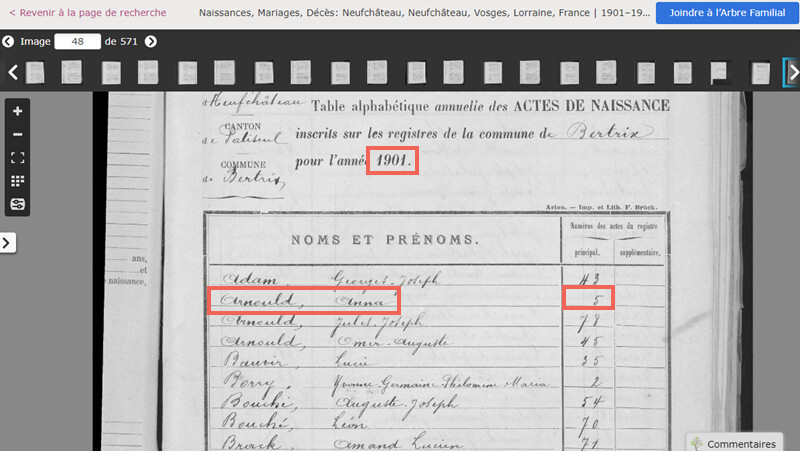 < Revenir à la page de recherche
Naissances, Mariages, Décès: Neufchâteau, Neufchâteau, Vosges, Lorraine, France | 1901–19…
Joindre à l'Arbre Familial
Image 48 de 571
Neufchâteau
CANTON
de Paliseul
COMMUNE
de Bertrix,
Table alphabétique annuelle des ACTES DE NAISSANCE
inscrits sur les registres de la commune de Bertrix
pour l'année 1901.
Arlon. — Imp. et Lith. F. Brück.
NOMS ET PRÉNOMS.
Numéros des actes du registre
principal. supplémentaire.
ans,
et
naissance,
Adam, Georges-Joseph 43
Arnould, Anna 5
Arnould, Jules-Joseph 78
Arnould, Omer-Auguste 45
Bauvir, Lucie 35
Borry, Yvonne-Germaine-Philomine-Maria 2
Bouché, Auguste-Joseph 54
Bouché, Léon 70
Brock Amand Lucien 71
Commentaires